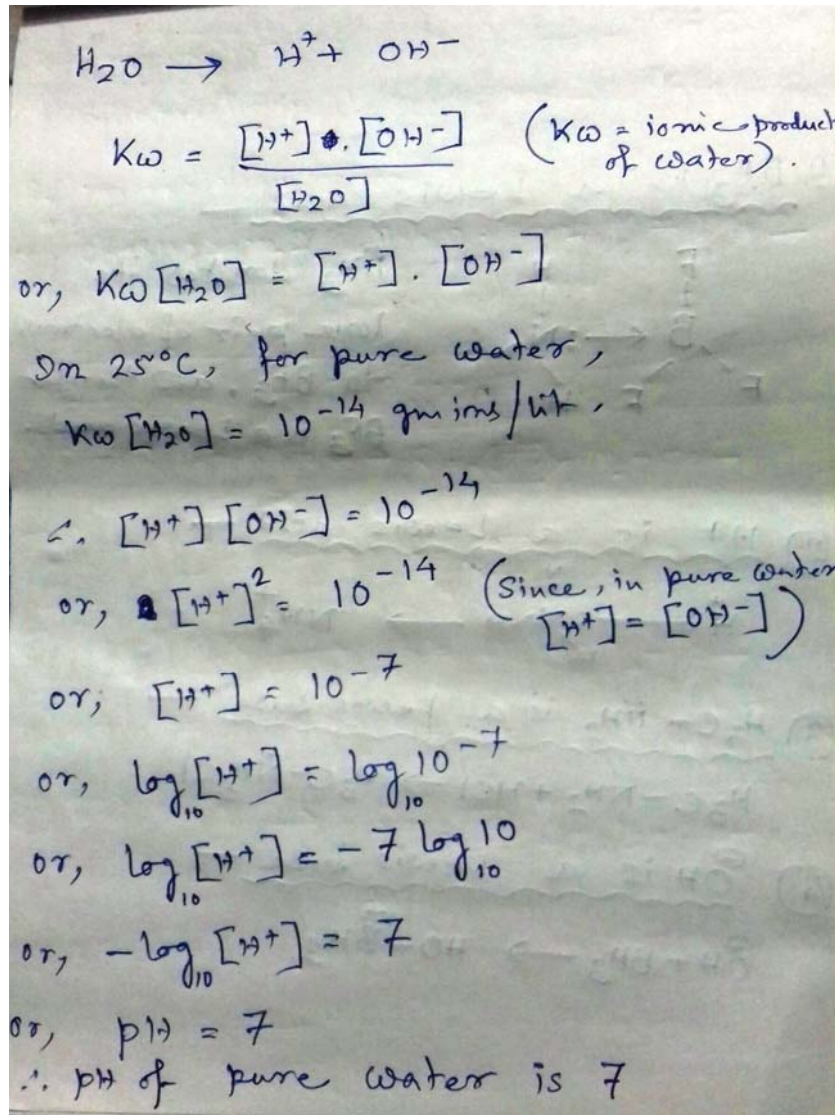 H₂O → H⁺ + OH⁻
Kw = [H⁺] . [OH⁻] / [H₂O] (Kw = ionic product of water).
or, Kw [H₂O] = [H⁺] . [OH⁻]
In 25°C, for pure water,
Kw [H₂O] = 10⁻¹⁴ gm ions/lit.
∴ [H⁺] [OH⁻] = 10⁻¹⁴
or, [H⁺]² = 10⁻¹⁴ (Since, in pure water [H⁺] = [OH⁻])
or, [H⁺] = 10⁻⁷
or, log₁₀ [H⁺] = log₁₀ 10⁻⁷
or, log₁₀ [H⁺] = -7 log₁₀ 10
or, -log₁₀ [H⁺] = 7
or, pH = 7
∴ pH of pure water is 7